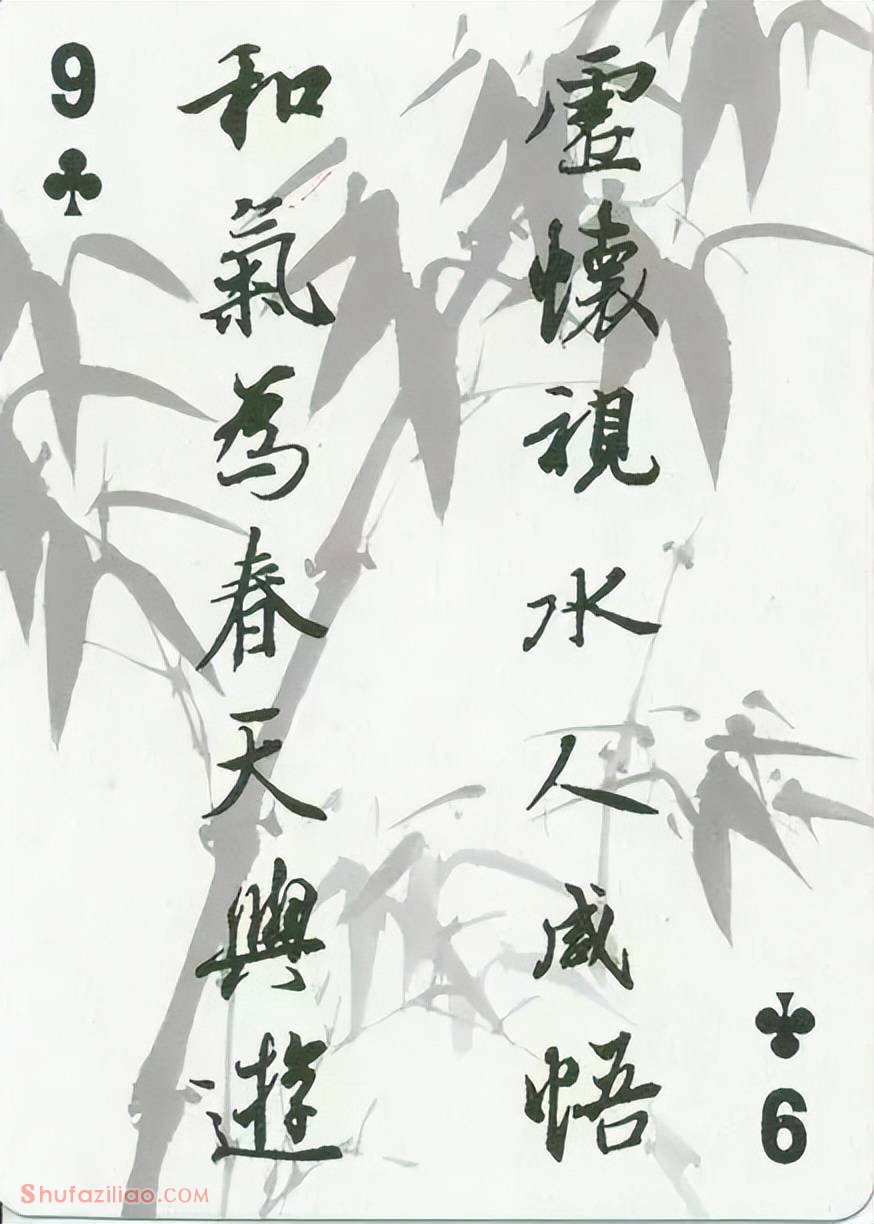 9
虛懷視水人咸悟
和氣為春天與遊
9
Shufaziliao.COM